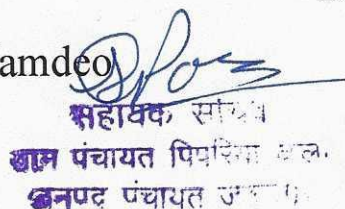 amdeo
सहायक सचिव
ग्राम पंचायत पिपरिया
जनपद पंचायत